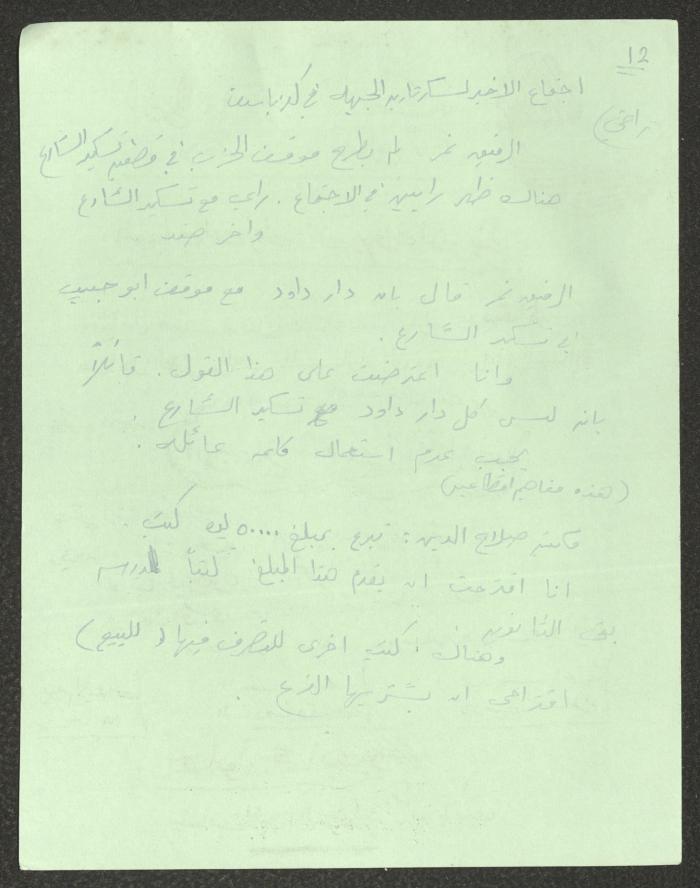 12
اجتماع الاخير لسكرتارية الجبهه في كفرياسيف
(راضي)
الرفيق نمر لم يطرح موقف الحزب في قضية تسكير الشارع
هناك ظهر رايين في الاجتماع. راي مع تسكير الشارع
واخر ضد
الرفيق نمر قال بان دار داود مع موقف ابو حبيب
في تسكير الشارع.
وانا اعترضت على هذا القول. قائلاً
بانه ليس كل دار داود مع تسكير الشارع.
يجب عدم استعمال كلمه عائله.
(هذه مفاهيم اقطاعيه)
مكتبة صلاح الدين: تبرع بمبلغ ٥٠٠٠٠ ليره كتب.
انا اقترحت ان يقدم هذا المبلغ كتباً لمدرسه
الثانويه
وهناك كتب اخرى للتصرف فيها (للبيع)
اقتراحي ان يشتريها الفرع.